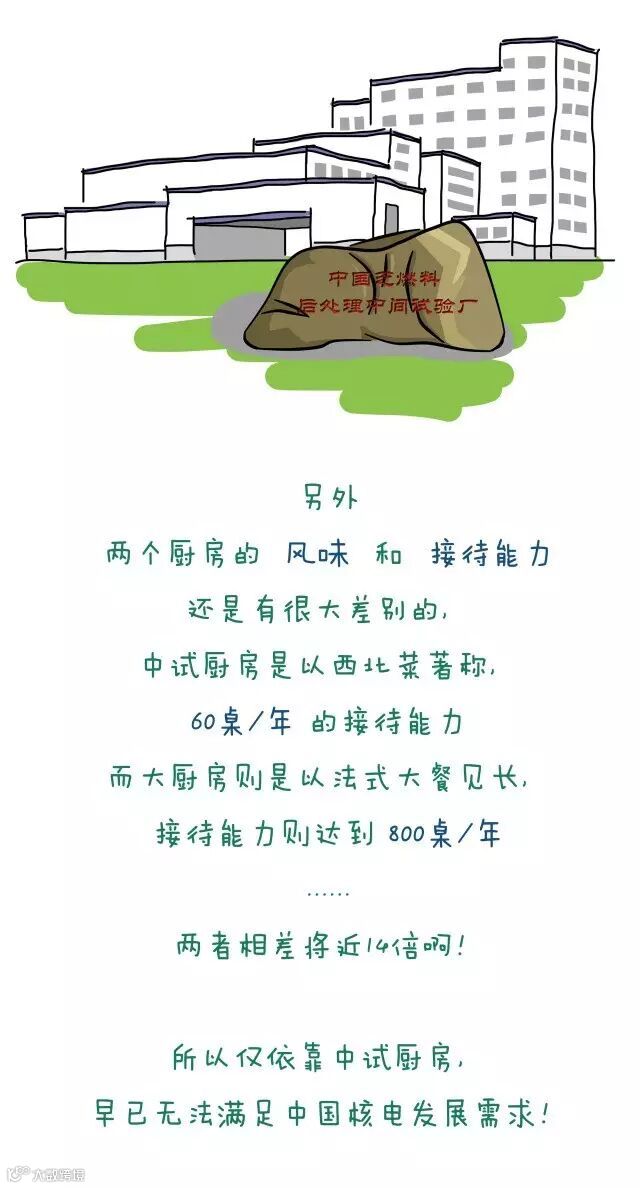 中国乏燃料
后处理中间试验厂
另外
两个厨房的 风味 和 接待能力
还是有很大差别的,
中试厨房是以西北菜著称,
60桌/年 的接待能力
而大厨房则是以法式大餐见长,
接待能力则达到 800桌/年
......
两者相差将近14倍啊!
所以仅依靠中试厨房,
早已无法满足中国核电发展需求!
大数跨境